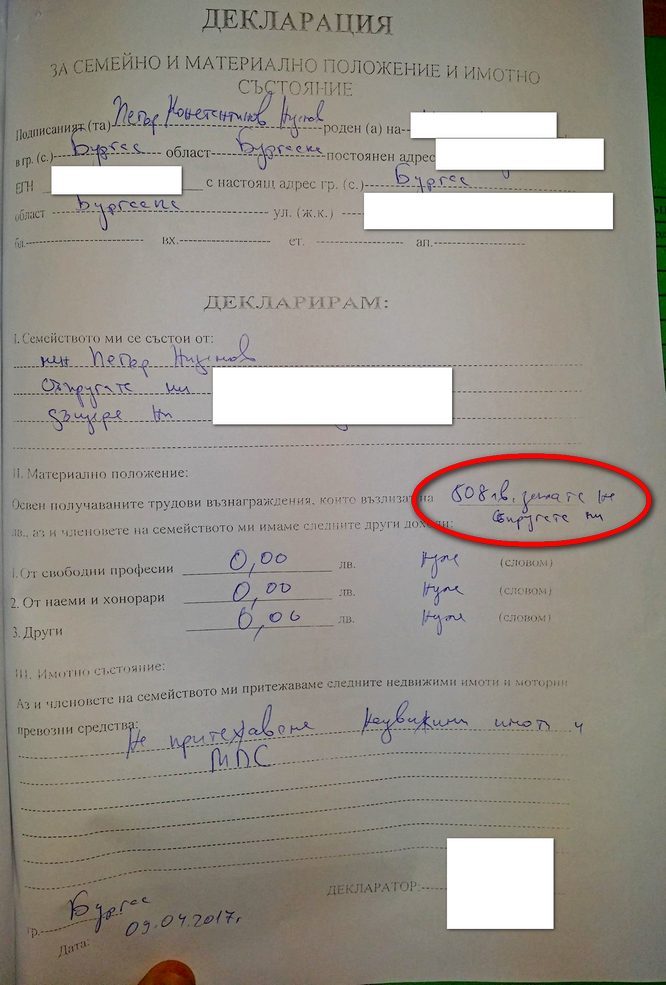 ДЕКЛАРАЦИЯ
ЗА СЕМЕЙНО И МАТЕРИАЛНО ПОЛОЖЕНИЕ И ИМОТНО
СЪСТОЯНИЕ
Подписаният (та) Петър Константинов Низамов роден (а) на
в гр. (с.) Бургас област Бургаска постоянен адрес
ЕГН с настоящ адрес гр. (с.) Бургас
област Бургаска ул. (ж.к.)
бл. вх. ет. ап.
ДЕКЛАРИРАМ:
I. Семейството ми се състои от:
мен Петър Низамов
съпругата ми
дъщеря ни
II. Материално положение:
Освен получаваните трудови възнаграждения, които възлизат на 508лв. на
съпругата ми
лв., аз и членовете на семейството ми имаме следните други доходи:
1. От свободни професии 0,00 лв. нула (словом)
2. От наеми и хонорари 0,00 лв. нула (словом)
3. Други 0,00 лв. нула (словом)
III. Имотно състояние:
Аз и членовете на семейството ми притежаваме следните недвижими имоти и моторни
превозни средства:
Не притежаваме недвижими имоти и
МПС
ДЕКЛАРАТОР:
гр. Бургас
Дата: 09.04.2017г